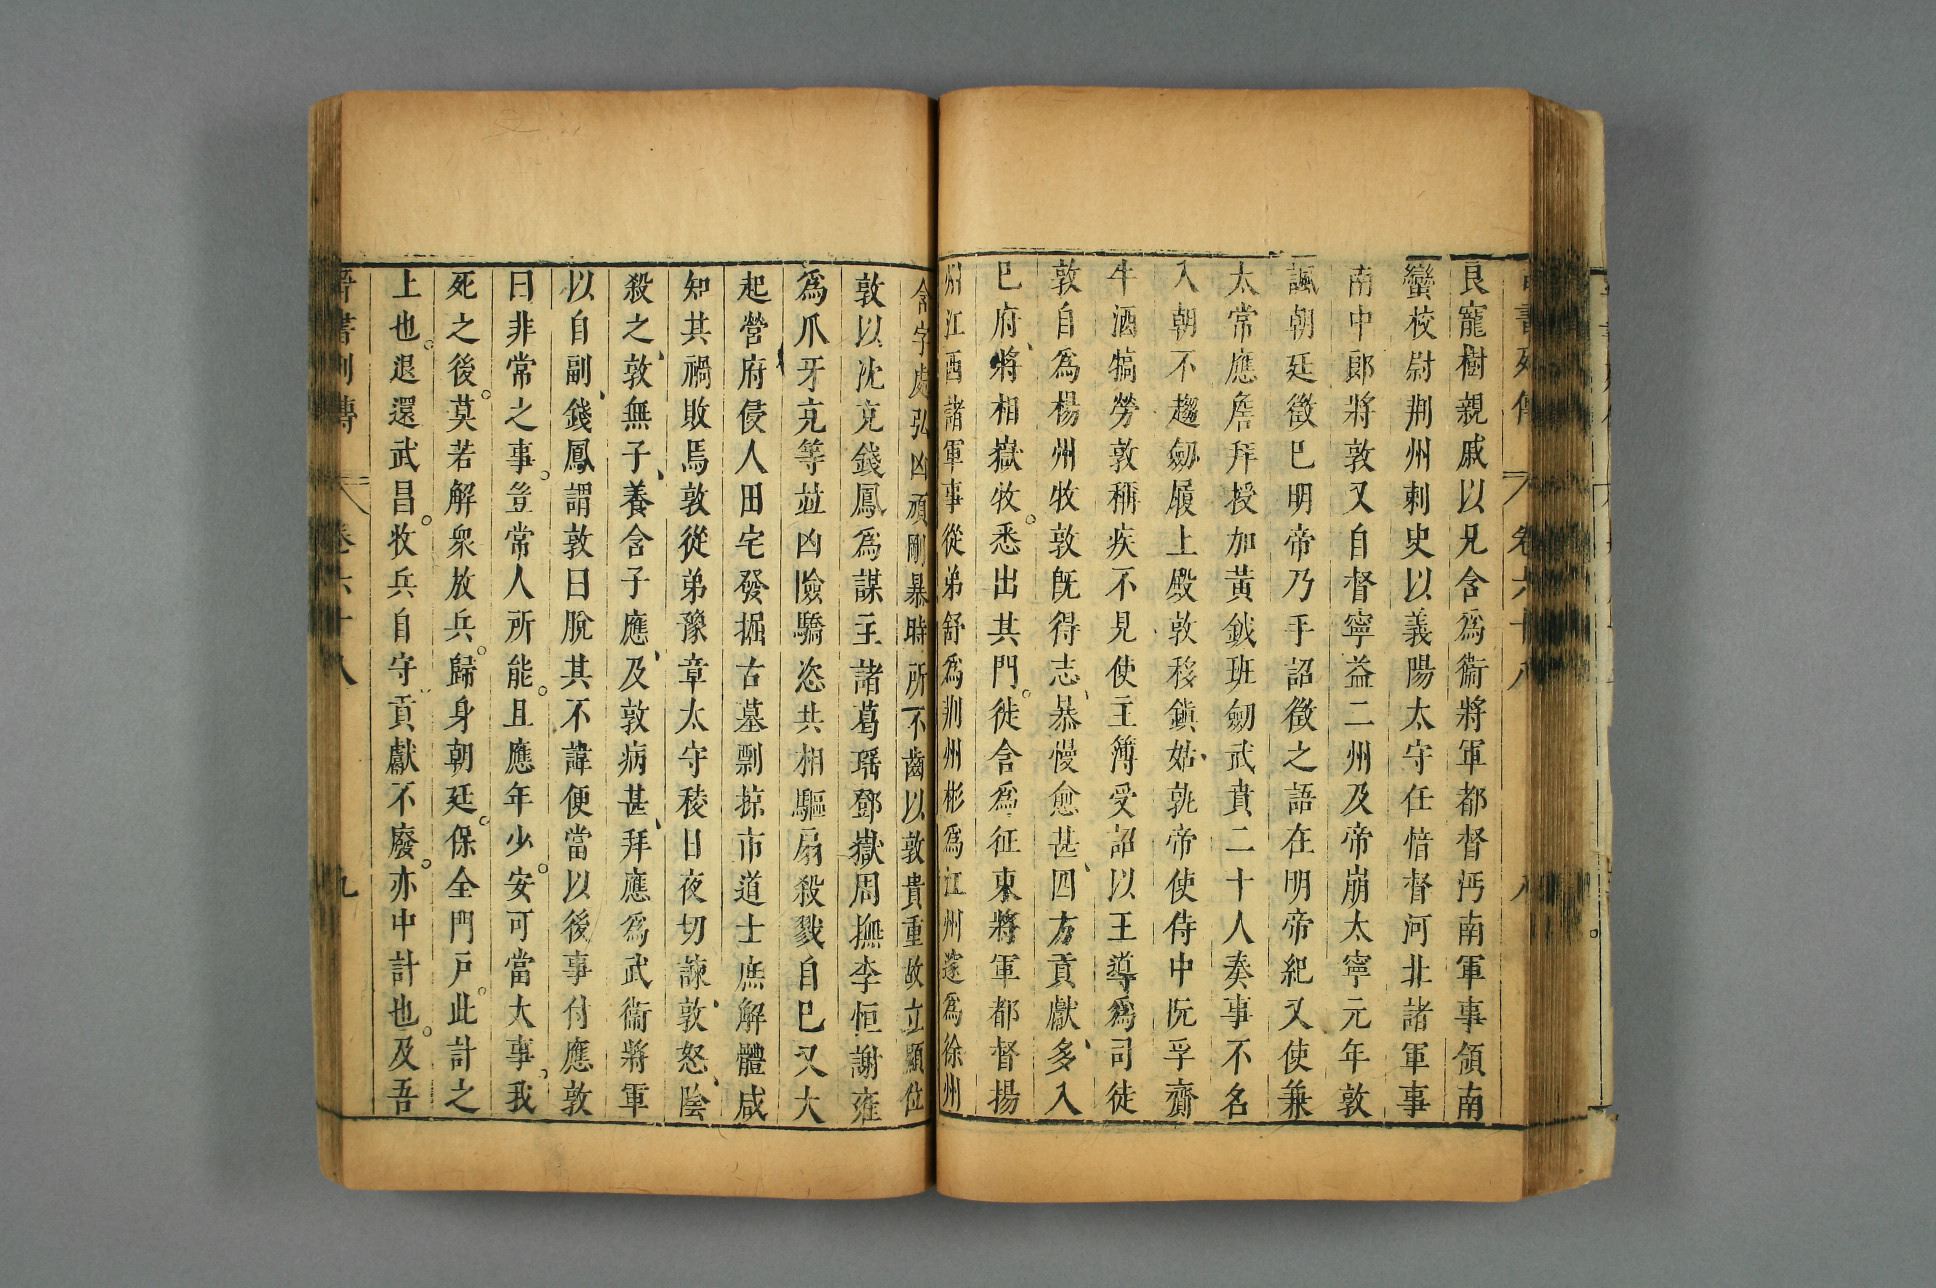 晉書列傳 卷六十八 八
良寵樹親戚以兄含爲衞將軍都督沔南軍事領南
蠻校尉荆州刺史以義陽太守任愔督河北諸軍事
南中郎將敦又自督寧益二州及帝崩太寧元年敦
諷朝廷徵巳明帝乃手詔徵之語在明帝紀又使兼
太常應詹拜授加黃鉞班劒武賁二十人奏事不名
入朝不趨劒履上殿敦移鎭姑孰帝使侍中阮孚齎
牛酒犒勞敦稱疾不見使主簿受詔以王導爲司徒
敦自爲楊州牧敦旣得志、暴慢愈甚、四方貢獻、多入
巳府、將相嶽牧。悉出其門。徙含爲征東將軍都督揚
州江西諸軍事從弟舒爲荆州彬爲江州邃爲徐州
含字處弘凶頑剛暴時所不齒以敦貴重故立顯位
敦以沈充錢鳳爲謀主諸葛瑶鄧嶽周撫李恒謝雍
爲爪牙充等並凶險驕恣共相驅扇殺戮自巳又大
起營府侵人田宅發掘古墓剽掠市道士庶解體咸
知其禍敗焉敦從弟豫章太守稜日夜切諫、敦怒、陰
殺之、敦無子、養含子應、及敦病甚、拜應爲武衞將軍
以自副、錢鳳謂敦曰脫其不諱便當以後事付應敦
曰非常之事。豈常人所能。且應年少。安可當大事、我
死之後。莫若解衆放兵。歸身朝廷。保全門戸。此計之
上也。退還武昌。收兵自守、貢獻不廢。亦中計也。及吾
晉書列傳 卷六十八 九